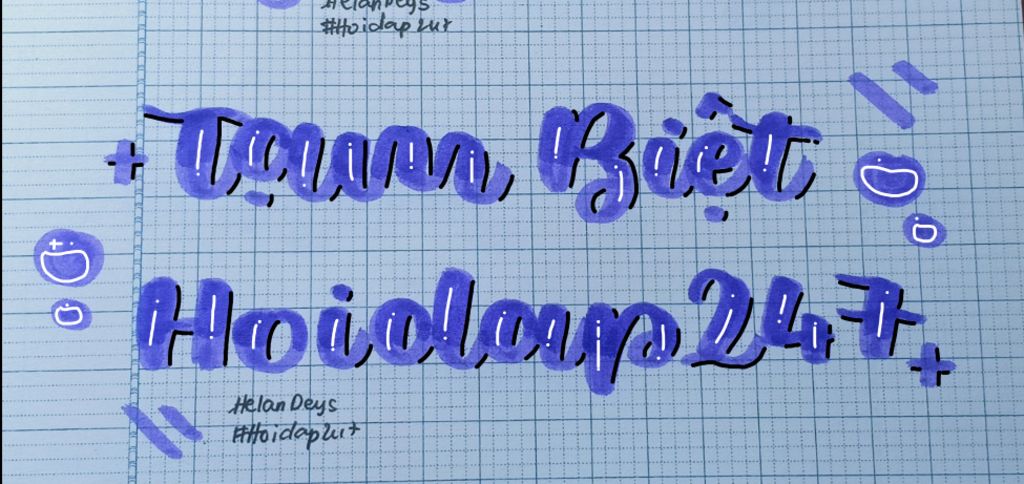 HelanDeys
#Hoidap247
Tạm Biệt
Hoidap247
HelanDeys
#Hoidap247